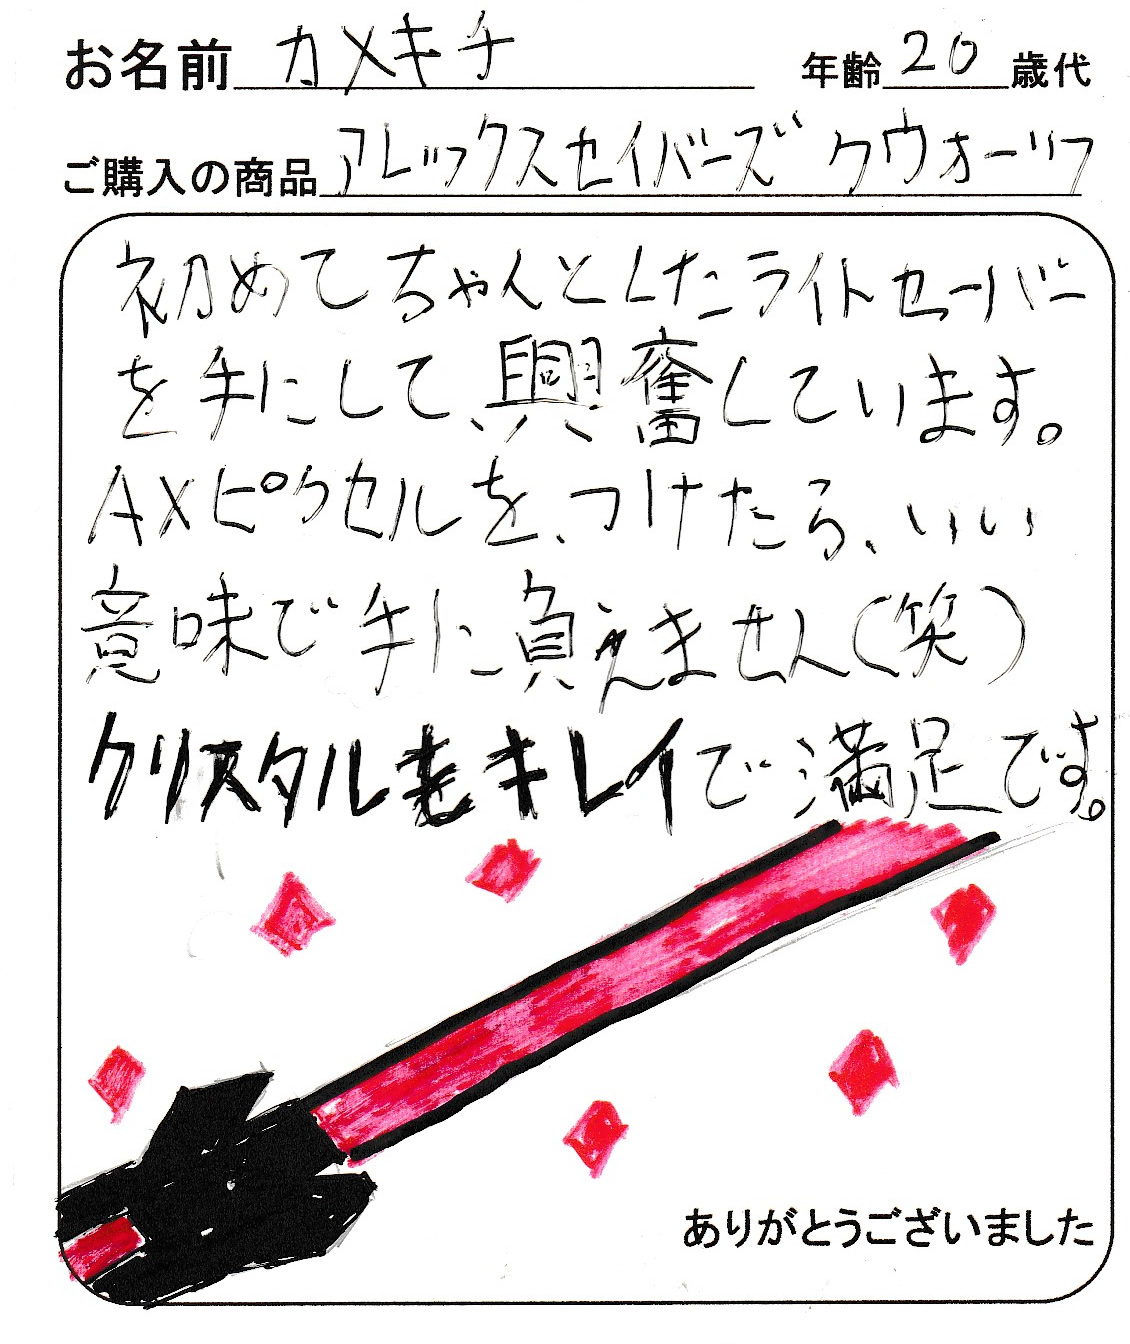 お名前 カメキチ 年齢 20 歳代
ご購入の商品 アレックスセイバーズ クウォーツ
初めてちゃんとしたライトセーバー
を手にして、興奮しています。
AXピクセルを、つけたら、いい
意味で手に負えません(笑)
クリスタルもキレイで満足です。
ありがとうございました